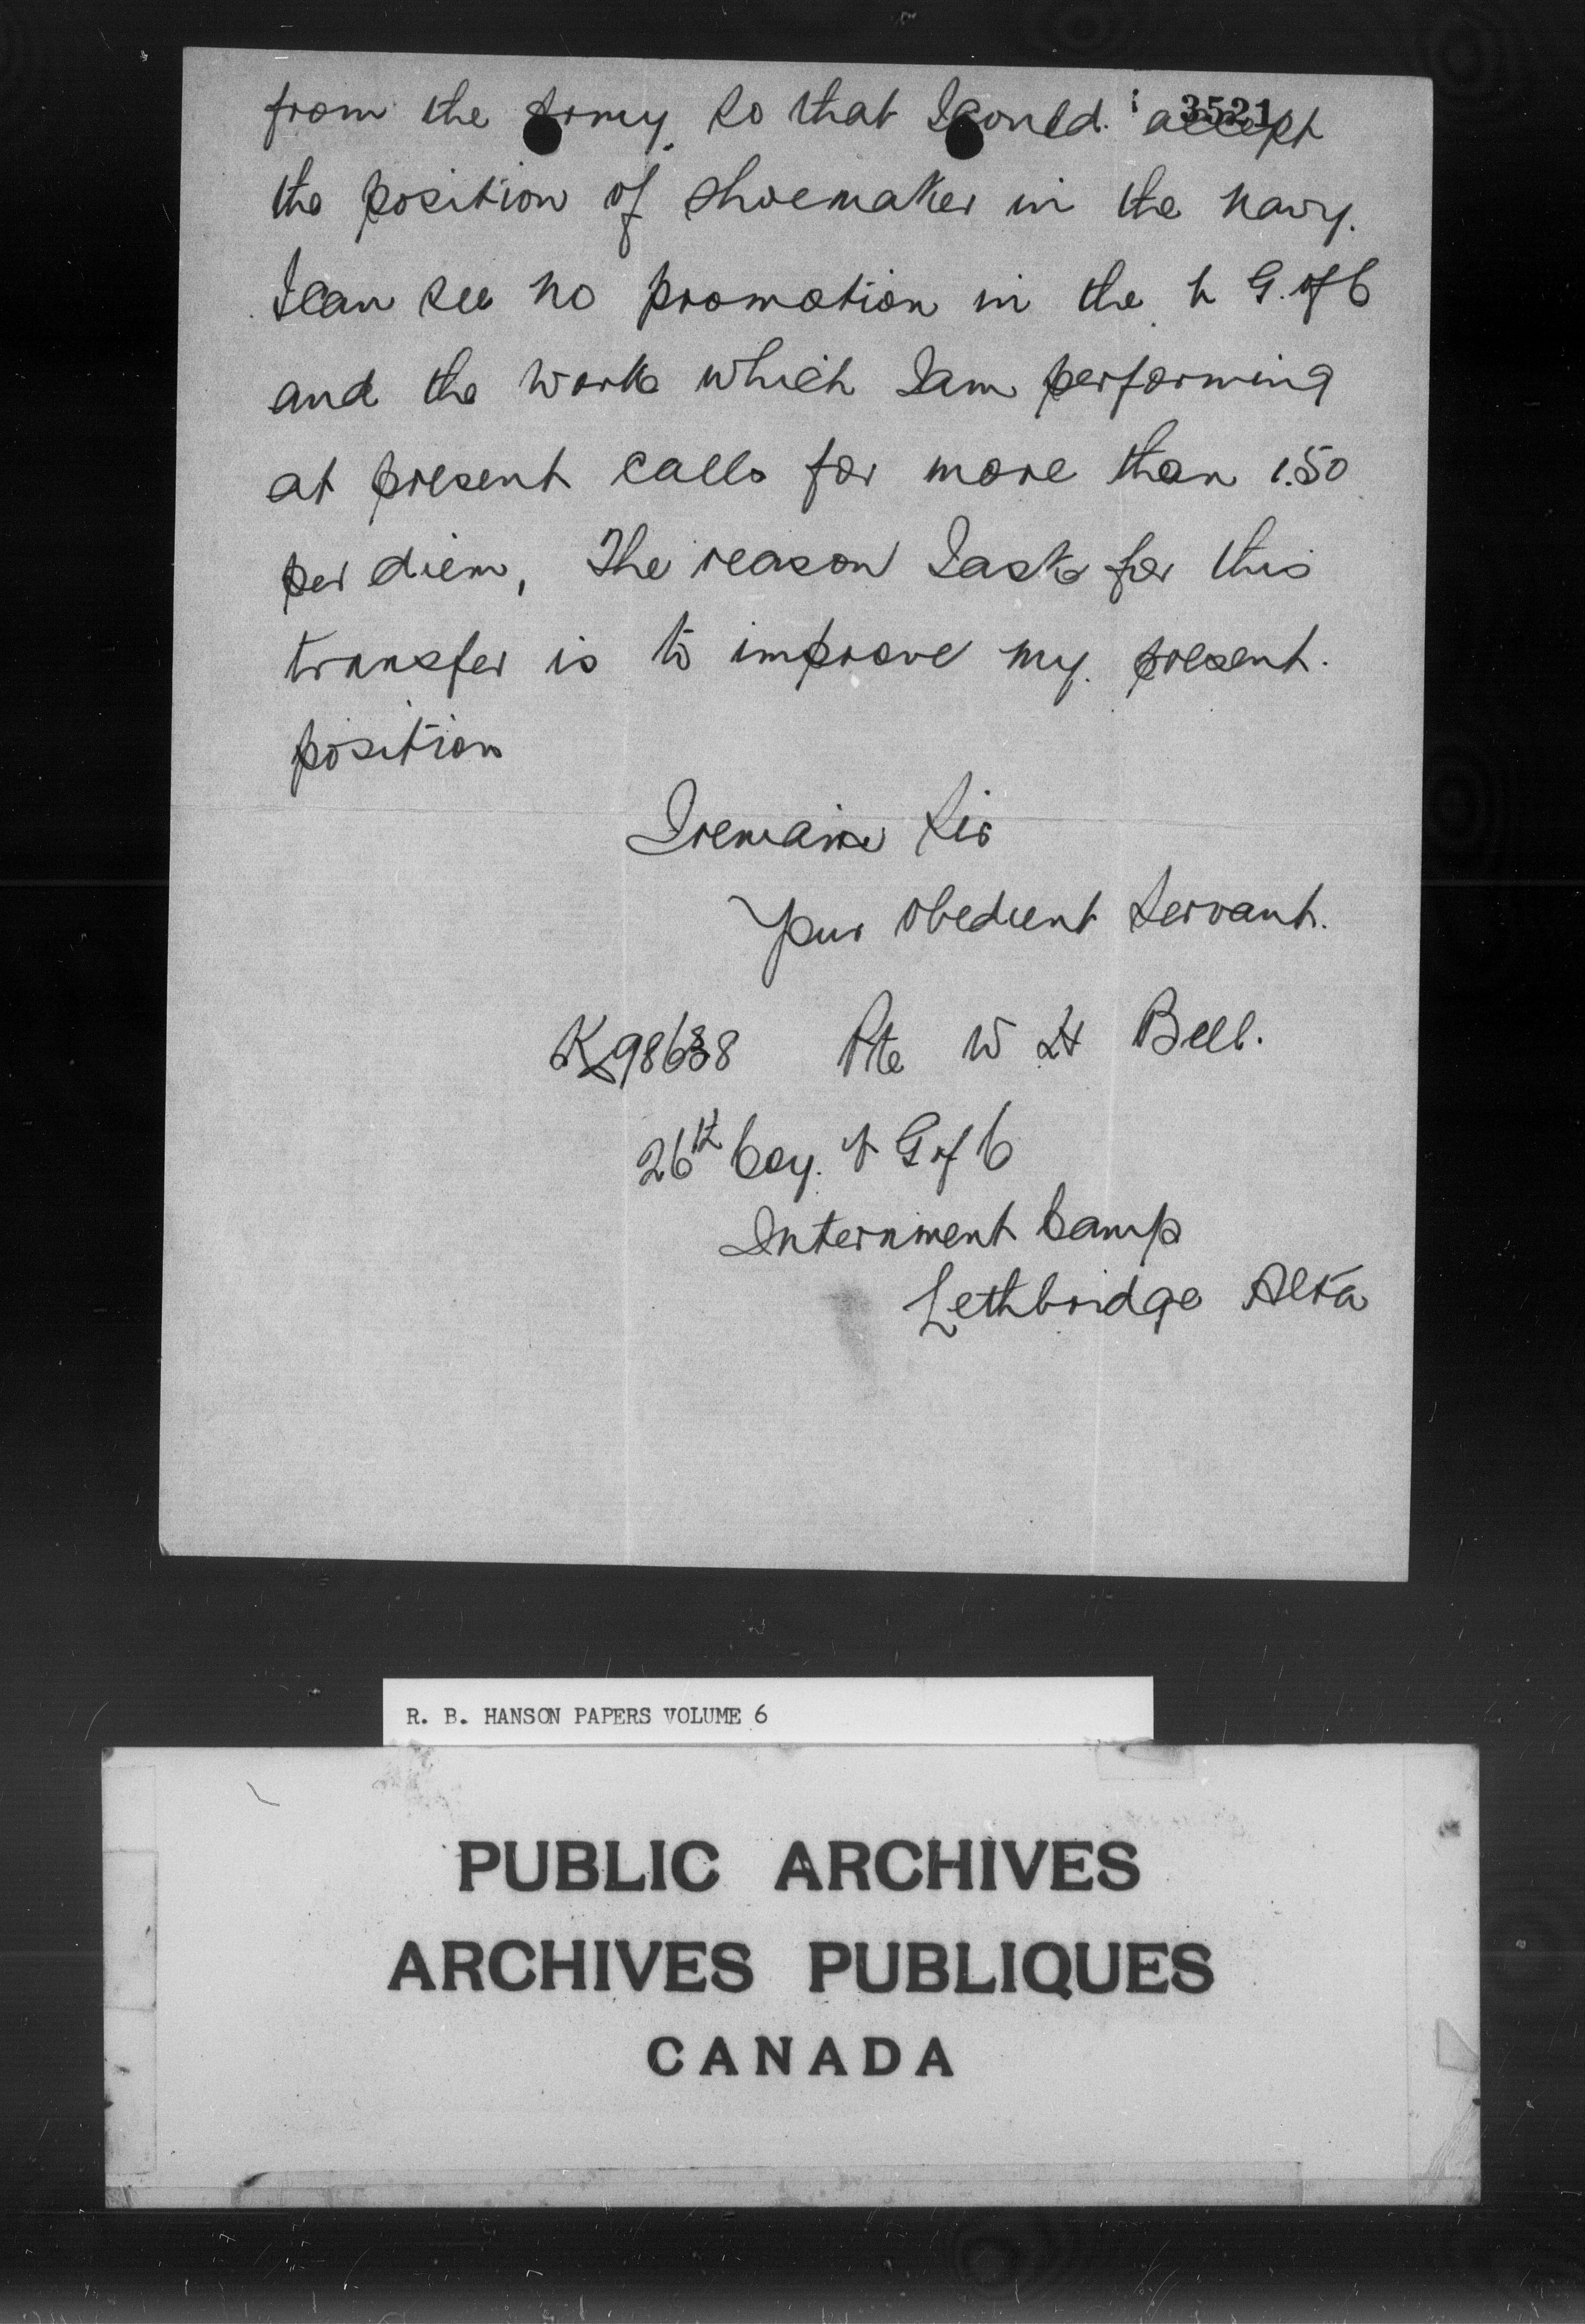 3521
from the Army. so that I could accept
the position of shoemaker in the navy.
I can see no promotion in the V G. of C
and the work which I am performing
at present calls for more than 1.50
per diem, The reason I ask for this
transfer is to improve my present.
position
I remain Sir
Your obedient Servant.
K98638 Pte W H Bell.
26th Coy. V G of C
Internment Camp
Lethbridge Alta
R. B. HANSON PAPERS VOLUME 6
PUBLIC ARCHIVES
ARCHIVES PUBLIQUES
CANADA